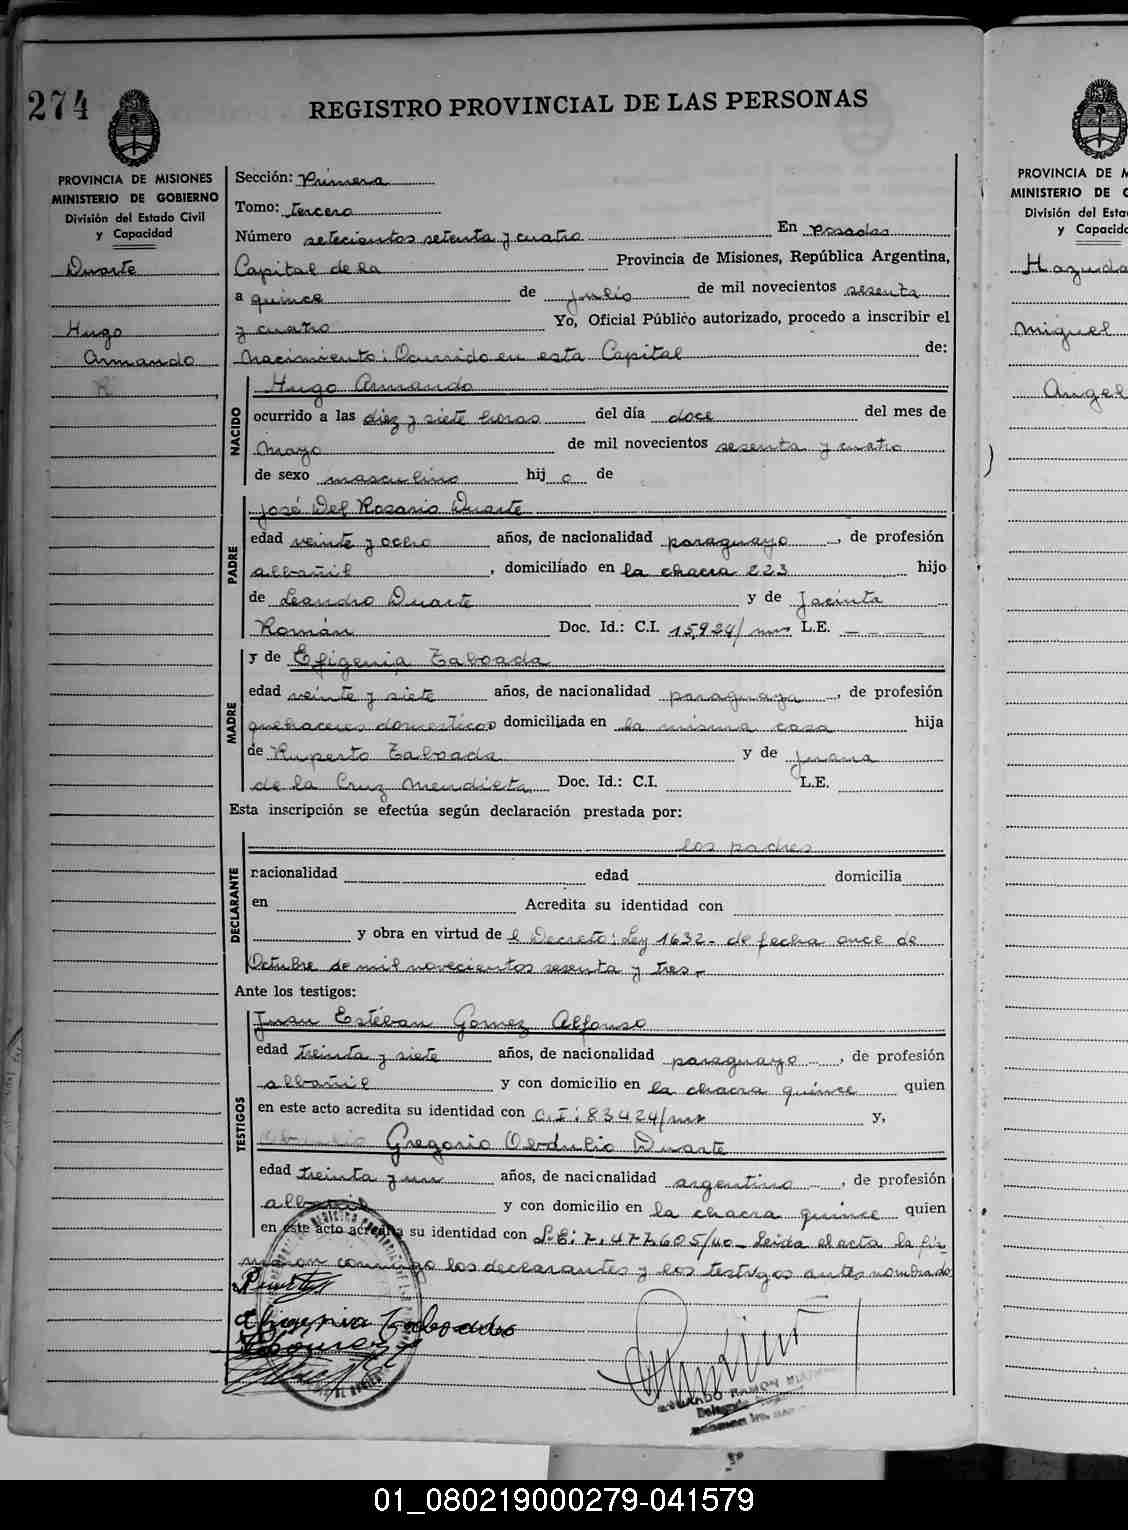 274
REGISTRO PROVINCIAL DE LAS PERSONAS
PROVINCIA DE MISIONES
MINISTERIO DE GOBIERNO
División del Estado Civil
y Capacidad
Duarte
Hugo
Armando
Sección: Primera
Tomo: tercero
Número setecientos setenta y cuatro En Posadas
Capital de la Provincia de Misiones, República Argentina,
a quince de julio de mil novecientos sesenta
y cuatro Yo, Oficial Público autorizado, procedo a inscribir el
nacimiento: Ocurrido en esta Capital de:
NACIDO
Hugo Armando
ocurrido a las diez y siete horas del día doce del mes de
mayo de mil novecientos sesenta y cuatro
de sexo masculino hij o de
PADRE
José Del Rosario Duarte
edad veinte y ocho años, de nacionalidad paraguayo, de profesión
albañil, domiciliado en la chacra 223 hijo
de Leandro Duarte y de Jacinta
Román Doc. Id.: C.I. 15,924/mns L.E. —
MADRE
y de Efigenia Taboada
edad veinte y siete años, de nacionalidad paraguaya, de profesión
quehaceres domesticos domiciliada en la misma casa hija
de Ruperto Taboada y de Juana
de la Cruz Mendieta Doc. Id.: C.I. L.E.
Esta inscripción se efectúa según declaración prestada por:
DECLARANTE
los padres
nacionalidad edad domicilia
en Acredita su identidad con
y obra en virtud de l Decreto: Ley 1632- de fecha once de
Octubre de mil novecientos sesenta y tres.-
Ante los testigos:
TESTIGOS
Juan Estéban Gomez Alfonso
edad treinta y siete años, de nacionalidad paraguayo, de profesión
albañil y con domicilio en la chacra quince quien
en este acto acredita su identidad con C.I: 83424/mns y,
Gregorio Obdulio Duarte
edad treinta y un años, de nacionalidad argentino, de profesión
albañil y con domicilio en la chacra quince quien
en este acto acredita su identidad con L.E: 7,477,605/ Leida el acta la fir
maron conmigo los declarantes y los testigos antes nombrado
Efigenia Taboada
RAMON
PROVINCIA DE M
MINISTERIO DE G
División del Esta
y Capacida
Hazuda
Miguel
Angel
01_080219000279-041579